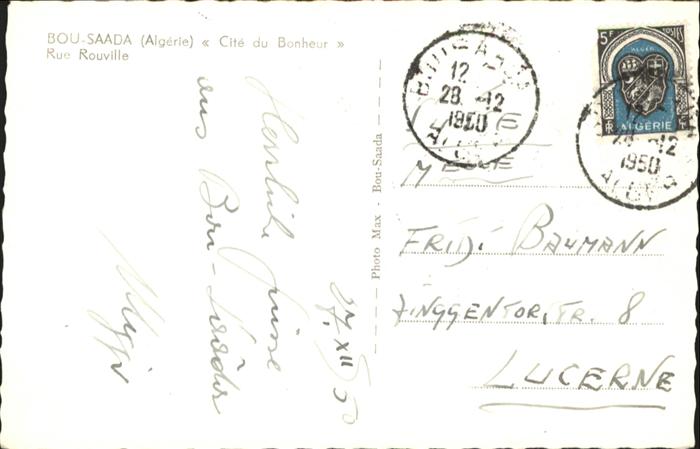 BOU-SAADA (Algérie) « Cité du Bonheur »
Rue Rouville
Herzliche Grüsse
aus Bou-Saada
27.XII.50
Photo Max - Bou-Saada
12
28 -12
1950
ALGER
5F
POSTES
ALGER
RF
ALGÉRIE
28 -12
1950
ALGER
M
FRIDI BAUMANN
ZINGGENTORSTR. 8
LUCERNE